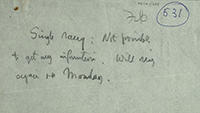 531
rang: Not possible
to get any information. Will ring
again on Monday.